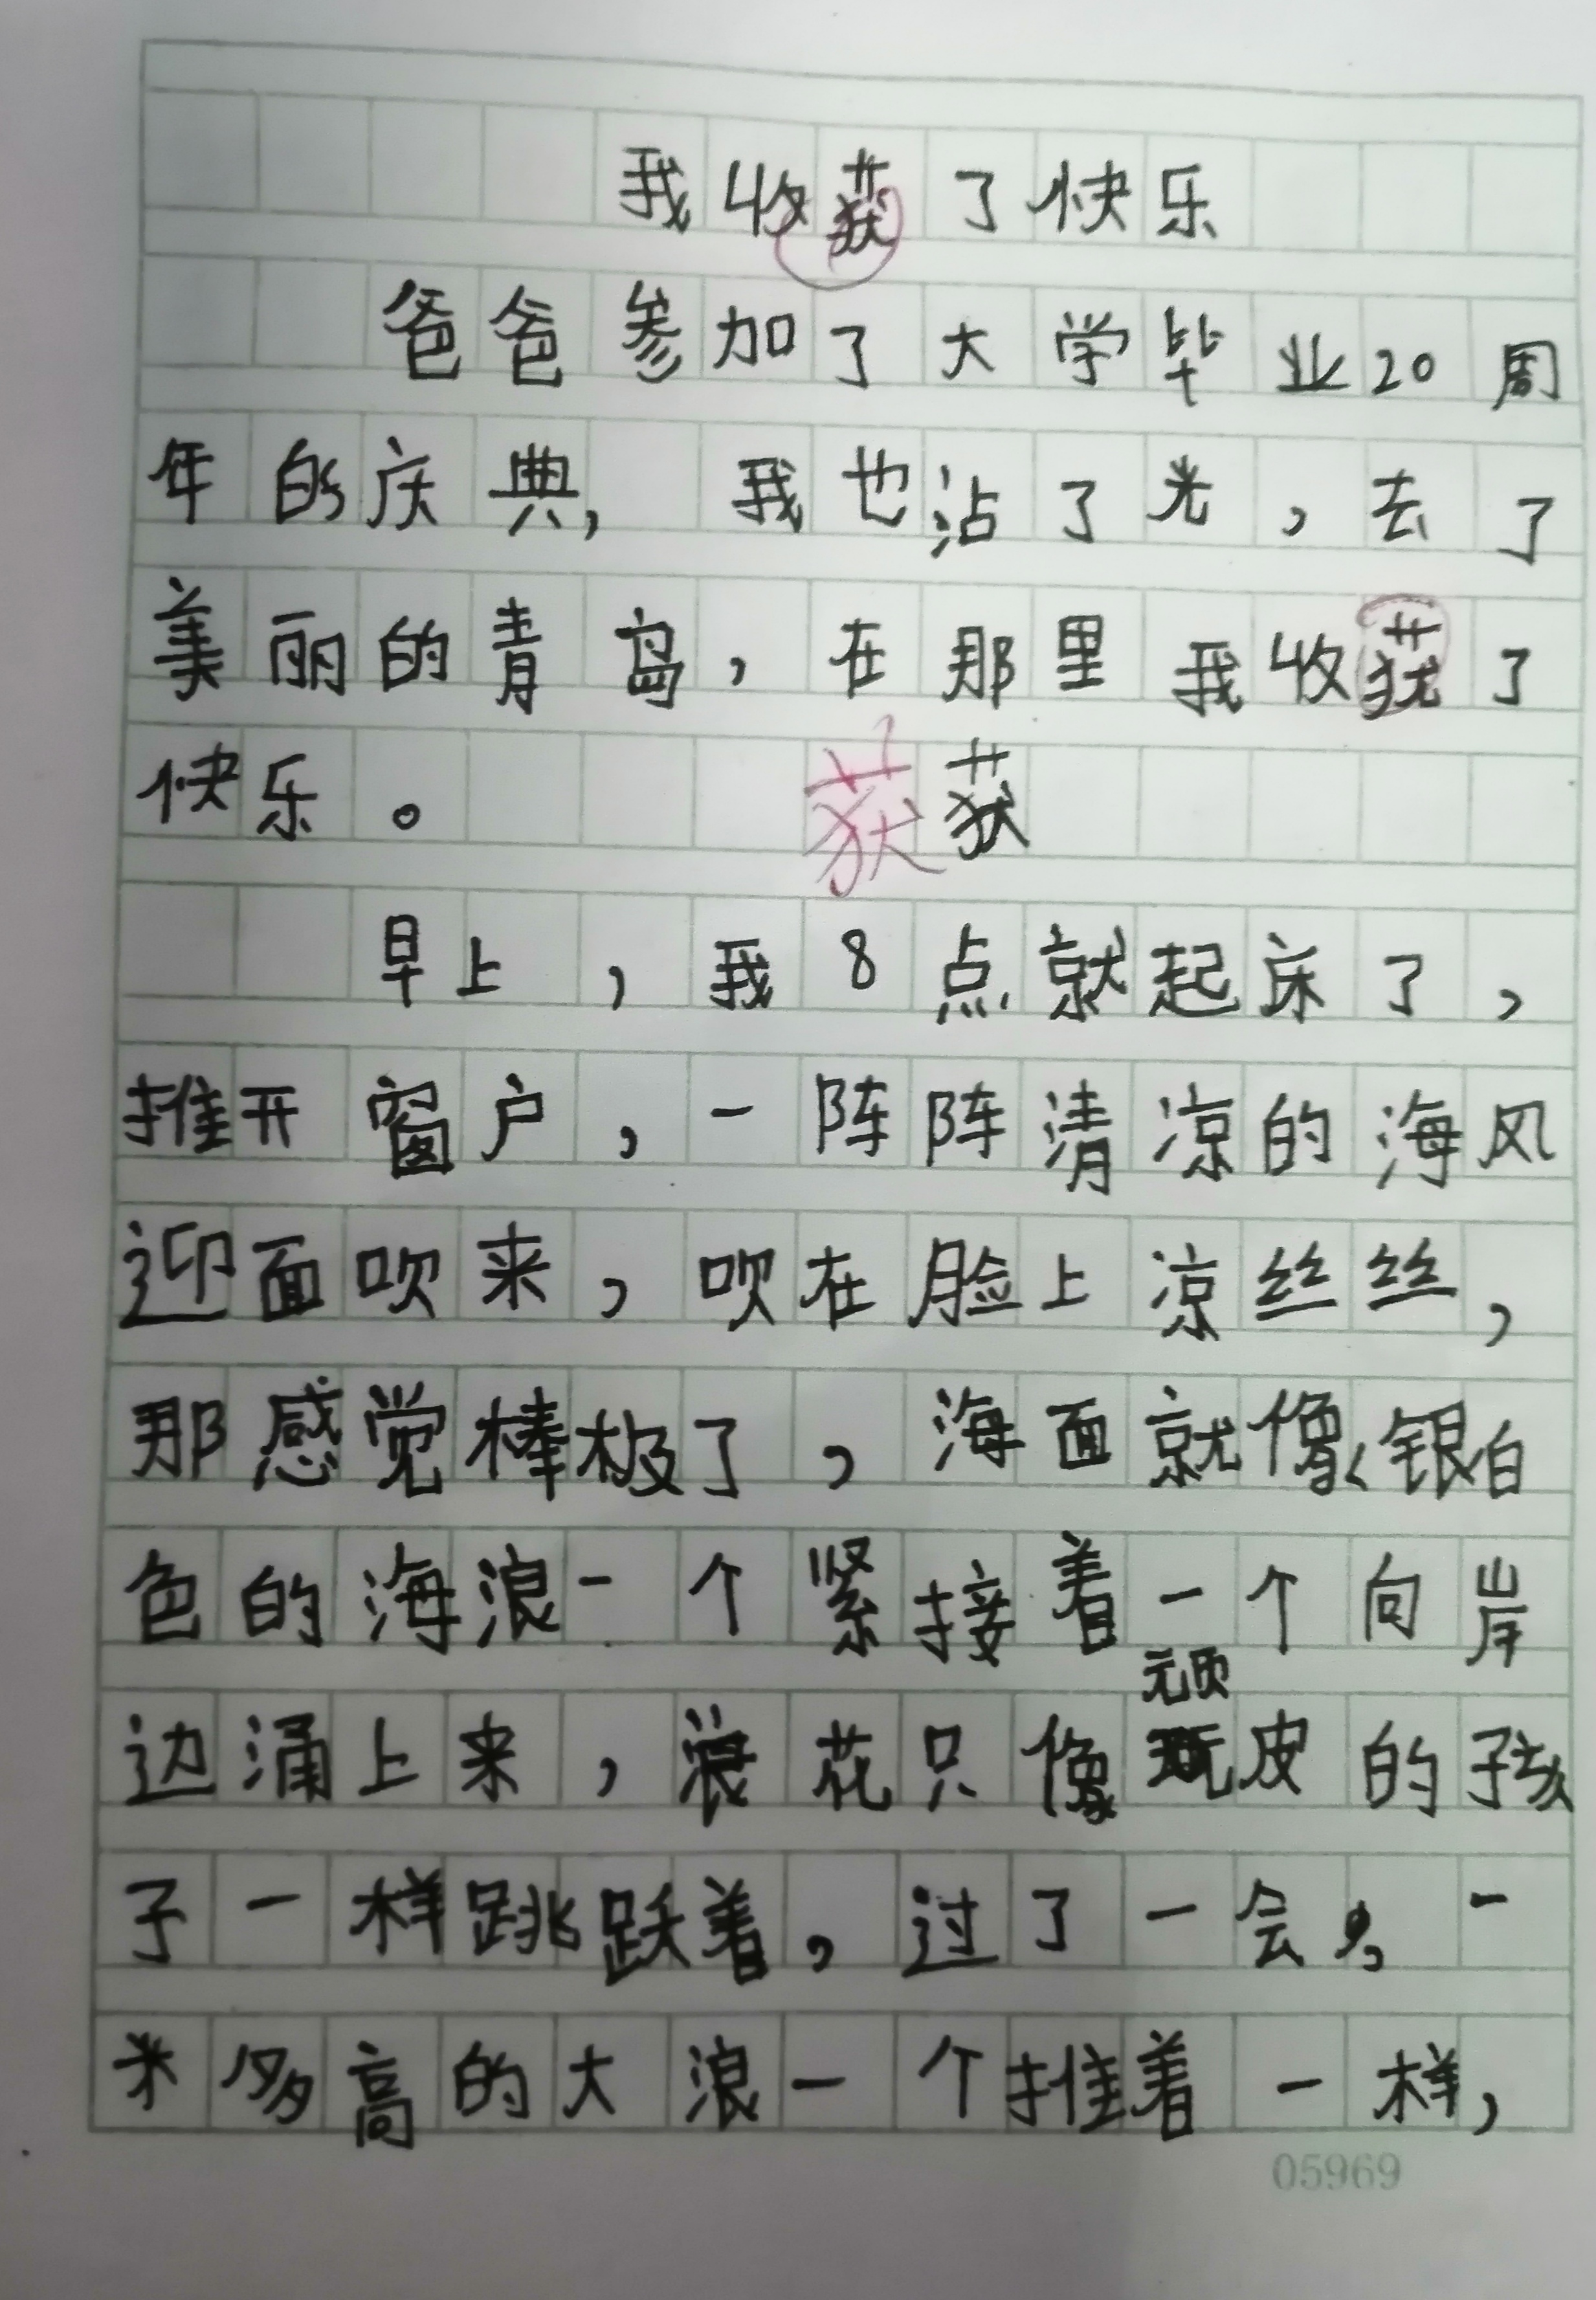 我收获了快乐
爸爸参加了大学毕业20周
年的庆典，我也沾了光，去了
美丽的青岛，在那里我收获了
快乐。 获 获
早上，我8点就起床了，
推开窗户，一阵阵清凉的海风
迎面吹来，吹在脸上凉丝丝，
那感觉棒极了，海面就像银白
色的海浪一个紧接着一个向岸
顽
边涌上来，浪花只像玩皮的孩
子一样跳跃着，过了一会，一
米多高的大浪一个推着一样，
05969